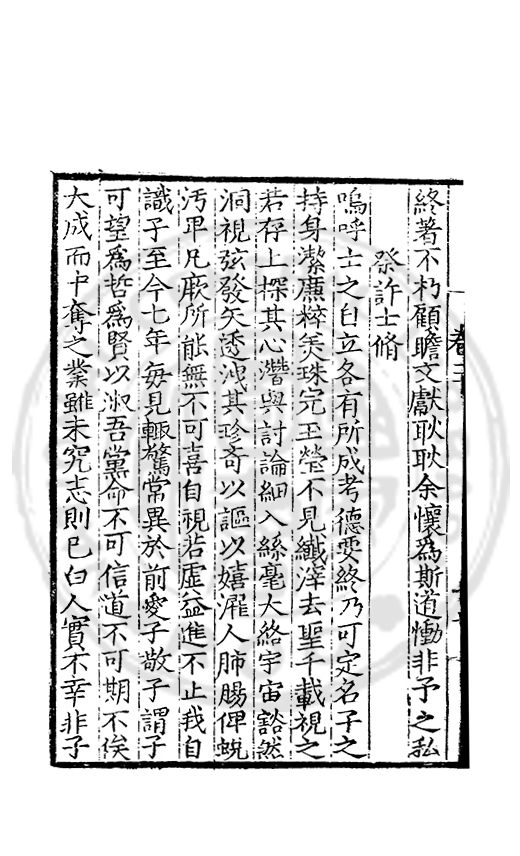 終著不朽顧瞻文獻耿耿余懷為斯道慟非予之私
祭許士脩
嗚呼士之自立各有所成考德要終乃可定名子之
持身潔廉粹美珠完玉瑩不見纖滓去聖千載視之
若存上探其心潛與討論細入絲毫大絡宇宙豁然
洞視弦發矢透洩其珍奇以謳以嬉濯人肺腸俾蛻
汚卑凡厥所能無不可喜自視若虛益進不止我自
識子至今七年每見輒驚常異於前愛子敬子謂子
可望為哲為賢以淑吾黨命不可信道不可期不俟
大成而中奪之業雖未究志則已白人實不幸非子